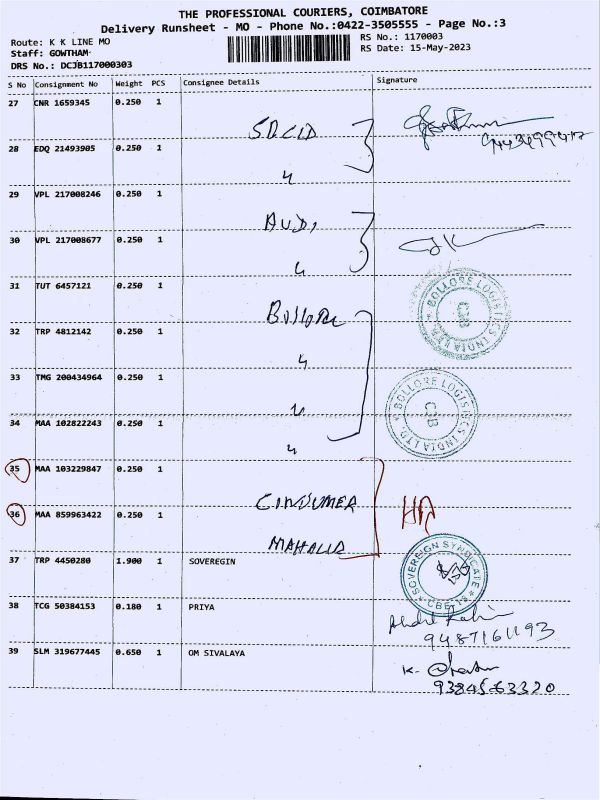 THE PROFESSIONAL COURIERS, COIMBATORE
Delivery Runsheet - MO - Phone No.:0422-3505555 - Page No.:3
Route: K K LINE MO
RS No.: 1170003
Staff: GOWTHAM
RS Date: 15-May-2023
DRS No.: DCJB117000303
S No Consignment No Weight PCS Consignee Details Signature
27 CNR 1659345 0.250 1
28 EDQ 21493905 0.250 1
29 VPL 217008246 0.250 1
AUDI
30 VPL 217008677 0.250 1
31 TUT 6457121 0.250 1
Bollore
BOLLORE LOGISTICS INDIA LTD. CJB
32 TRP 4812142 0.250 1
33 TMG 200434964 0.250 1
BOLLORE LOGISTICS INDIA LTD. CJB
34 MAA 102822243 0.250 1
35 MAA 103229847 0.250 1
CONSUMER
36 MAA 859963422 0.250 1
37 TRP 4450280 1.900 1 SOVEREGIN
SOVEREIGN SYNDICATE CBE-18
38 TCG 50384153 0.180 1 PRIYA
9487161193
39 SLM 319677445 0.650 1 OM SIVALAYA
K.
9384563320